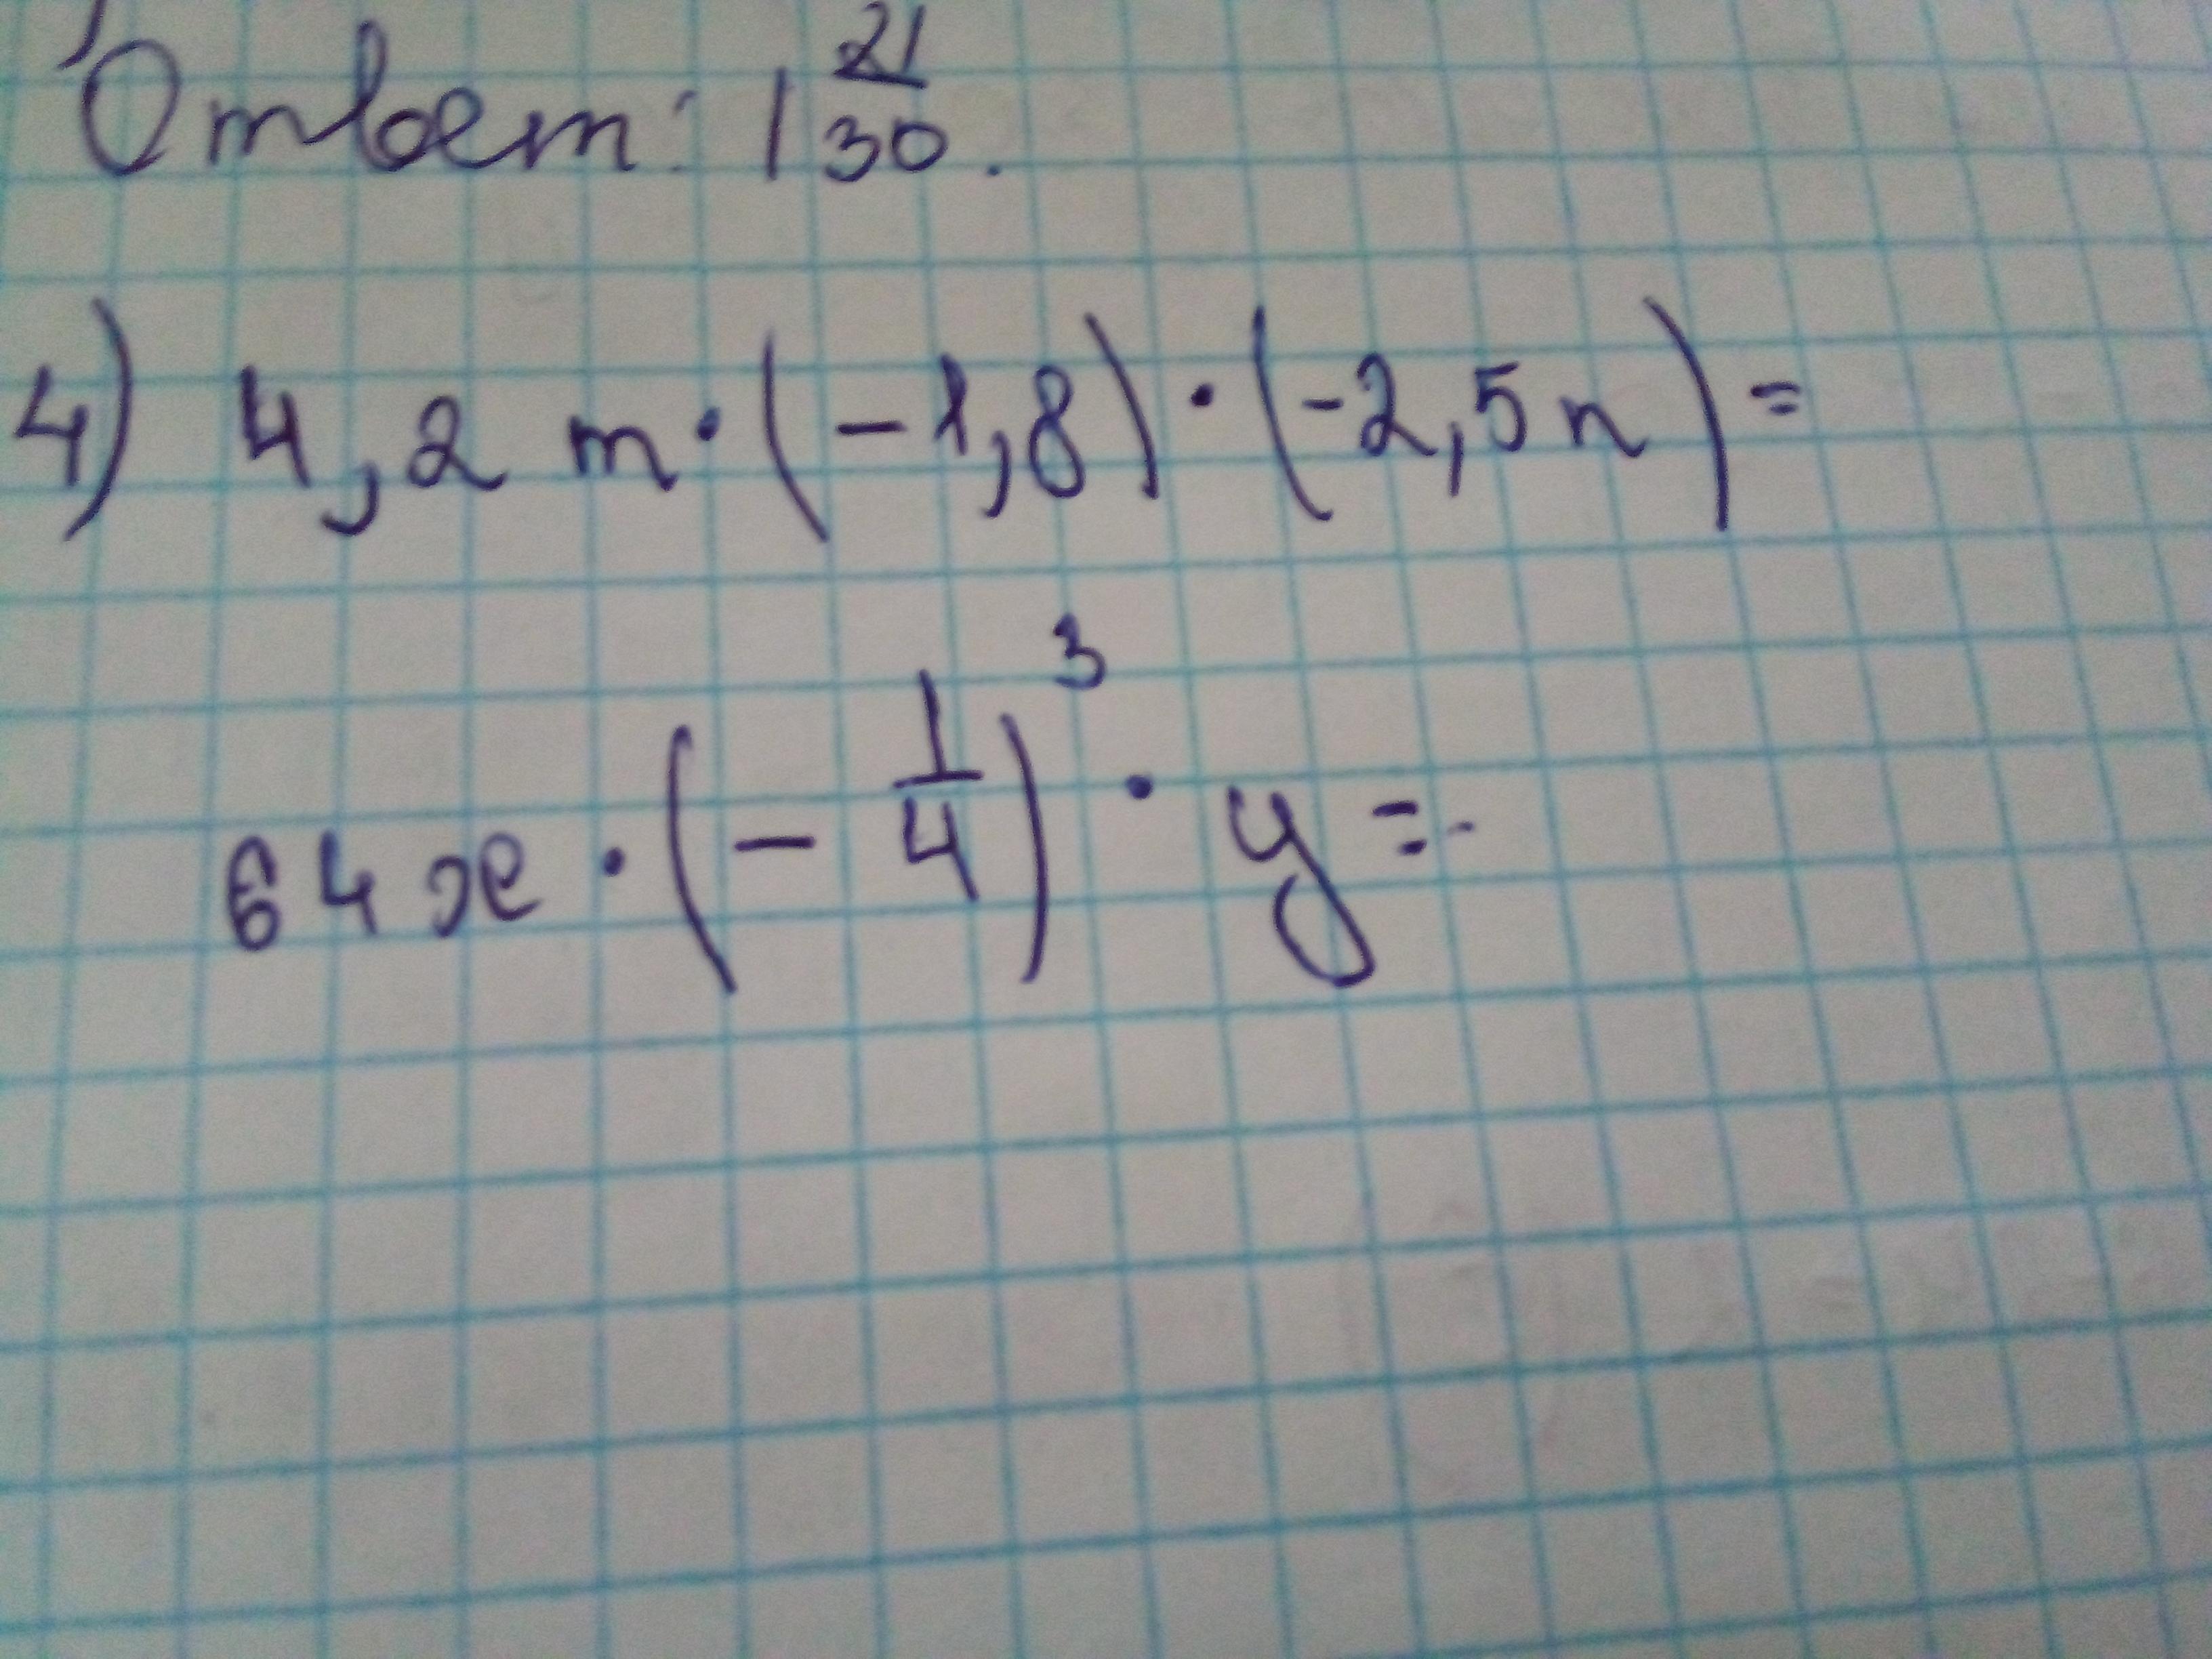 Ответ: 1 21/30.
4) 4,2 m · (-1,8) · (-2,5n) =
64x · (- 1/4)³ · y =